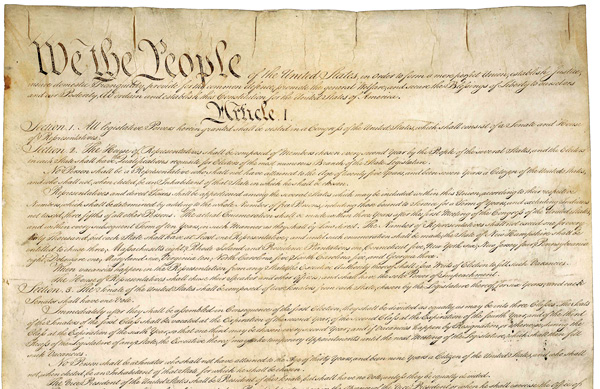 We the People of the United States, in Order to form a more perfect Union, establish Justice,
insure domestic Tranquility, provide for the common defence, promote the general Welfare, and secure the Blessings of Liberty to ourselves
and our Posterity, do ordain and establish this Constitution for the United States of America.
Article. I.
Section. 1. All legislative Powers herein granted shall be vested in a Congress of the United States, which shall consist of a Senate and House
of Representatives.
Section. 2. The House of Representatives shall be composed of Members chosen every second Year by the People of the several States, and the Electors
in each State shall have Qualifications requisite for Electors of the most numerous Branch of the State Legislature.
No Person shall be a Representative who shall not have attained to the Age of twenty five Years, and been seven Years a Citizen of the United States,
and who shall not, when elected, be an Inhabitant of that State in which he shall be chosen.
Representatives and direct Taxes shall be apportioned among the several States which may be included within this Union, according to their respective
Numbers, which shall be determined by adding to the whole Number of free Persons, including those bound to Service for a Term of Years, and excluding Indians
not taxed, three fifths of all other Persons. The actual Enumeration shall be made within three Years after the first Meeting of the Congress of the United States,
and within every subsequent Term of ten Years, in such Manner as they shall by Law direct. The Number of Representatives shall not exceed one for every
thirty Thousand, but each State shall have at Least one Representative; and until such enumeration shall be made, the State of New Hampshire shall be
entitled to chuse three, Massachusetts eight, Rhode Island and Providence Plantations one, Connecticut five, New York six, New Jersey four, Pennsylvania
eight, Delaware one, Maryland six, Virginia ten, North Carolina five, South Carolina five, and Georgia three.
When vacancies happen in the Representation from any State, the Executive Authority thereof shall issue Writs of Election to fill such Vacancies.
The House of Representatives shall chuse their Speaker and other Officers; and shall have the sole Power of Impeachment.
Section. 3. The Senate of the United States shall be composed of two Senators from each State, chosen by the Legislature thereof, for six Years; and each
Senator shall have one Vote.
Immediately after they shall be assembled in Consequence of the first Election, they shall be divided as equally as may be into three Classes. The Seats
of the Senators of the first Class shall be vacated at the Expiration of the second Year, of the second Class at the Expiration of the fourth Year, and of the third
Class at the Expiration of the sixth Year, so that one third may be chosen every second Year; and if Vacancies happen by Resignation, or otherwise, during the
Recess of the Legislature of any State, the Executive thereof may make temporary Appointments until the next Meeting of the Legislature, which shall then fill
such Vacancies.
No Person shall be a Senator who shall not have attained to the Age of thirty Years, and been nine Years a Citizen of the United States, and who shall
not, when elected, be an Inhabitant of that State for which he shall be chosen.
The Vice President of the United States shall be President of the Senate, but shall have no Vote, unless they be equally divided.